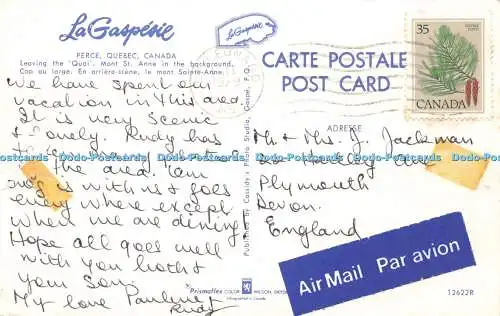 La Gaspésie
PERCE, QUEBEC, CANADA
Leaving the "Quai". Mont St. Anne in the background.
Cap au large. En arrière-scène, le mont Sainte-Anne.
La Gaspésie
CARTE POSTALE
POST CARD
35
CANADA
ADRESSE
We have spent our
vacation in this area.
It is very scenic
& lonely. Rudy has
the area. Tam
is with us & goes
every where except
when we are dining!
Hope all goes well
with you both &
your Son.
My love Pauline &
Rudy
Mr. & Mrs. J. Jackman
Hartley Ave
Plymouth
Devon.
England
Published by Cassidy's Photo Studio, Gaspé, P.Q.
Prismaflex COLOR WILSON,
Lithographed in Canada
Air Mail Par avion
12622R
Dodo-Postcards Dodo-Postcards Dodo-Postcards Dodo-Postcards